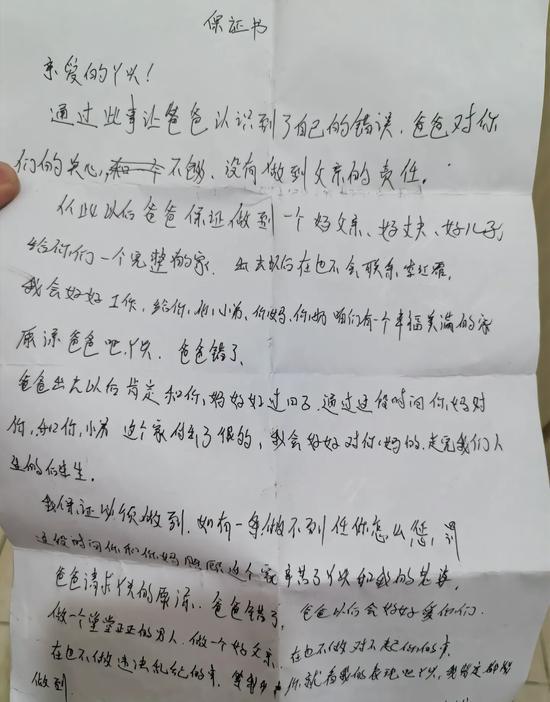 保证书
亲爱的丫头!
通过此事让爸爸认识到了自己的错误.爸爸对你
们的关心,不够、没有做到父亲的责任.
从此以后爸爸保证做到一个好父亲、好丈夫、好儿子,
给你们一个完整的家.出去以后在也不会联系李红霞.
我会好好工作,给你,和小弟、你妈、你奶咱们有一个幸福美满的家
原谅爸爸吧丫头.爸爸错了、
爸爸出去以后肯定和你妈好好过日子.通过这段时间你妈对
你,和你小弟 这个家付出了很多,我会好好对你妈的.走完我们人
生的
我保证必须做到.如有一条做不到任你怎么
这段时间你和你妈照顾这个家辛苦了丫头和我的
爸爸请求丫头的原谅.爸爸错了,爸爸以后会好好爱你们.
做一个堂堂正正的男人.做一个好父亲.在也不做对不起你们的事
在也不做违法乱纪的事.就看我的表现吧丫头,我肯定
做到